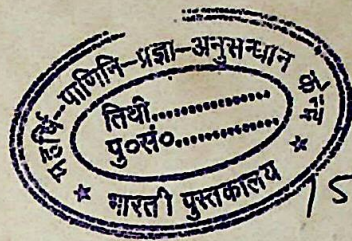 महर्षि-पाणिनि-प्रज्ञा-अनुसन्धान केन्द्र
तिथी..................
पु०सं०..................
* भारती पुस्तकालय *
15